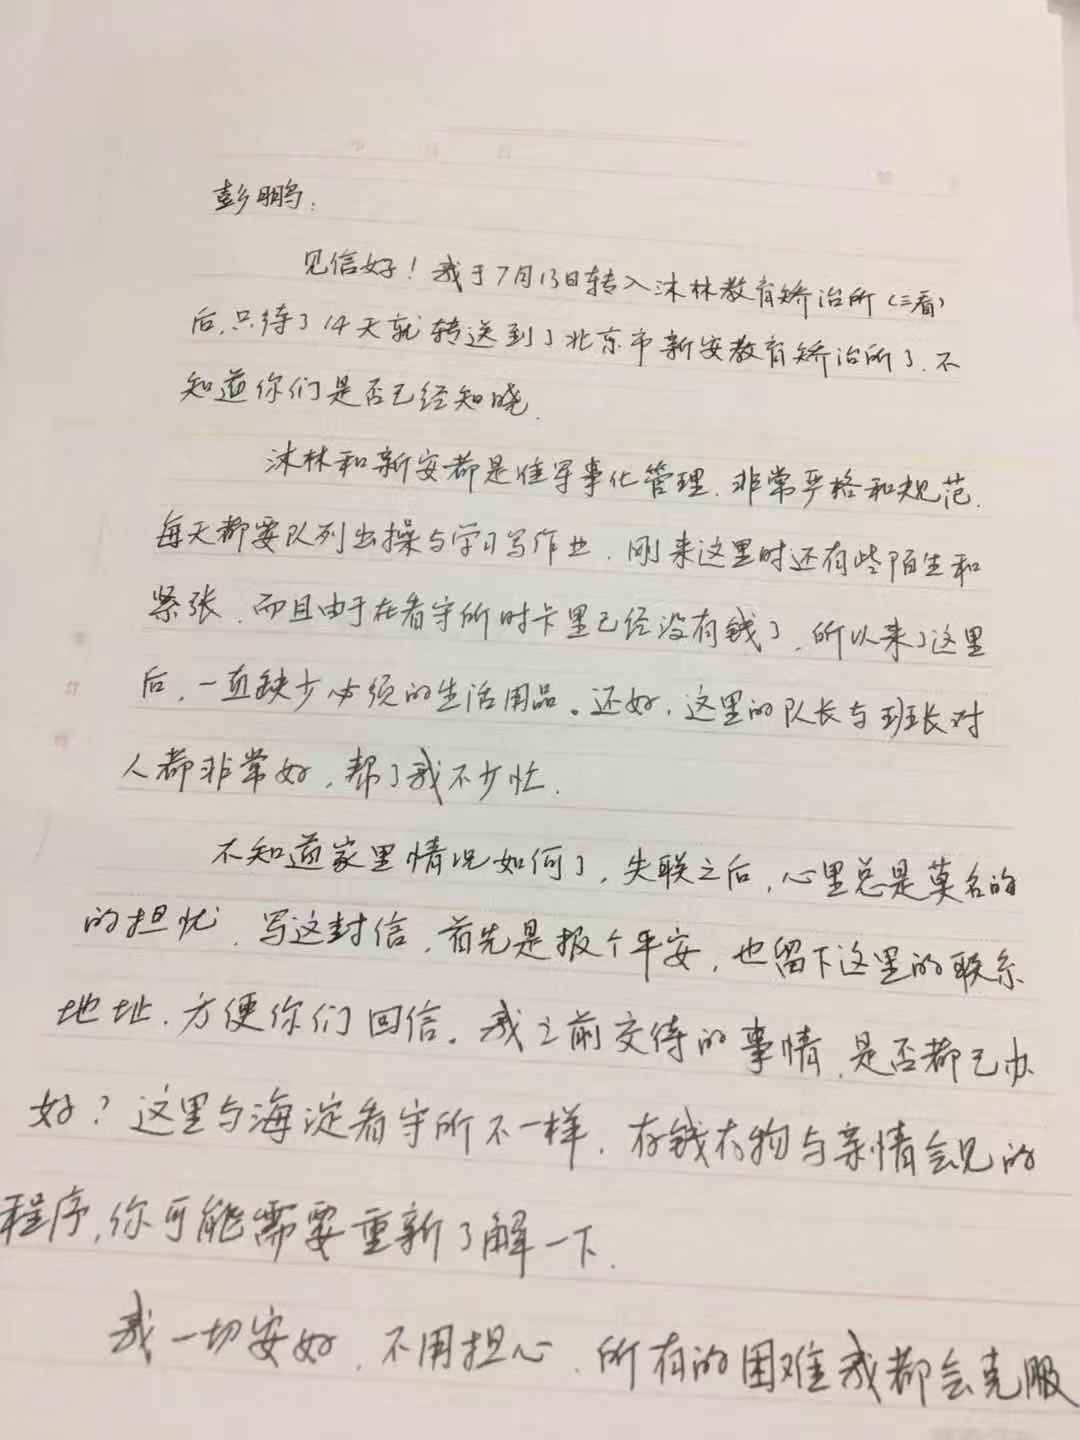 彭鹏：
见信好！我于7月13日转入沐林教育矫治所（三看）
后，只待了14天就转送到了北京市新安教育矫治所了，不
知道你们是否已经知晓.
沐林和新安都是准军事化管理，非常严格和规范.
每天都要队列出操与学习写作业，刚来这里时还有些陌生和
紧张，而且由于在看守所时卡里已经没有钱了，所以来了这里
后，一直缺少必须的生活用品。还好，这里的队长与班长对
人都非常好，帮了我不少忙.
不知道家里情况如何了，失联之后，心里总是莫名的
的担忧，写这封信，首先是报个平安，也留下这里的联系
地址，方便你们回信。我之前交待的事情，是否都已办
好？这里与海淀看守所不一样，存钱存物与亲情会见的
程序，你可能需要重新了解一下.
我一切安好，不用担心，所有的困难我都会克服